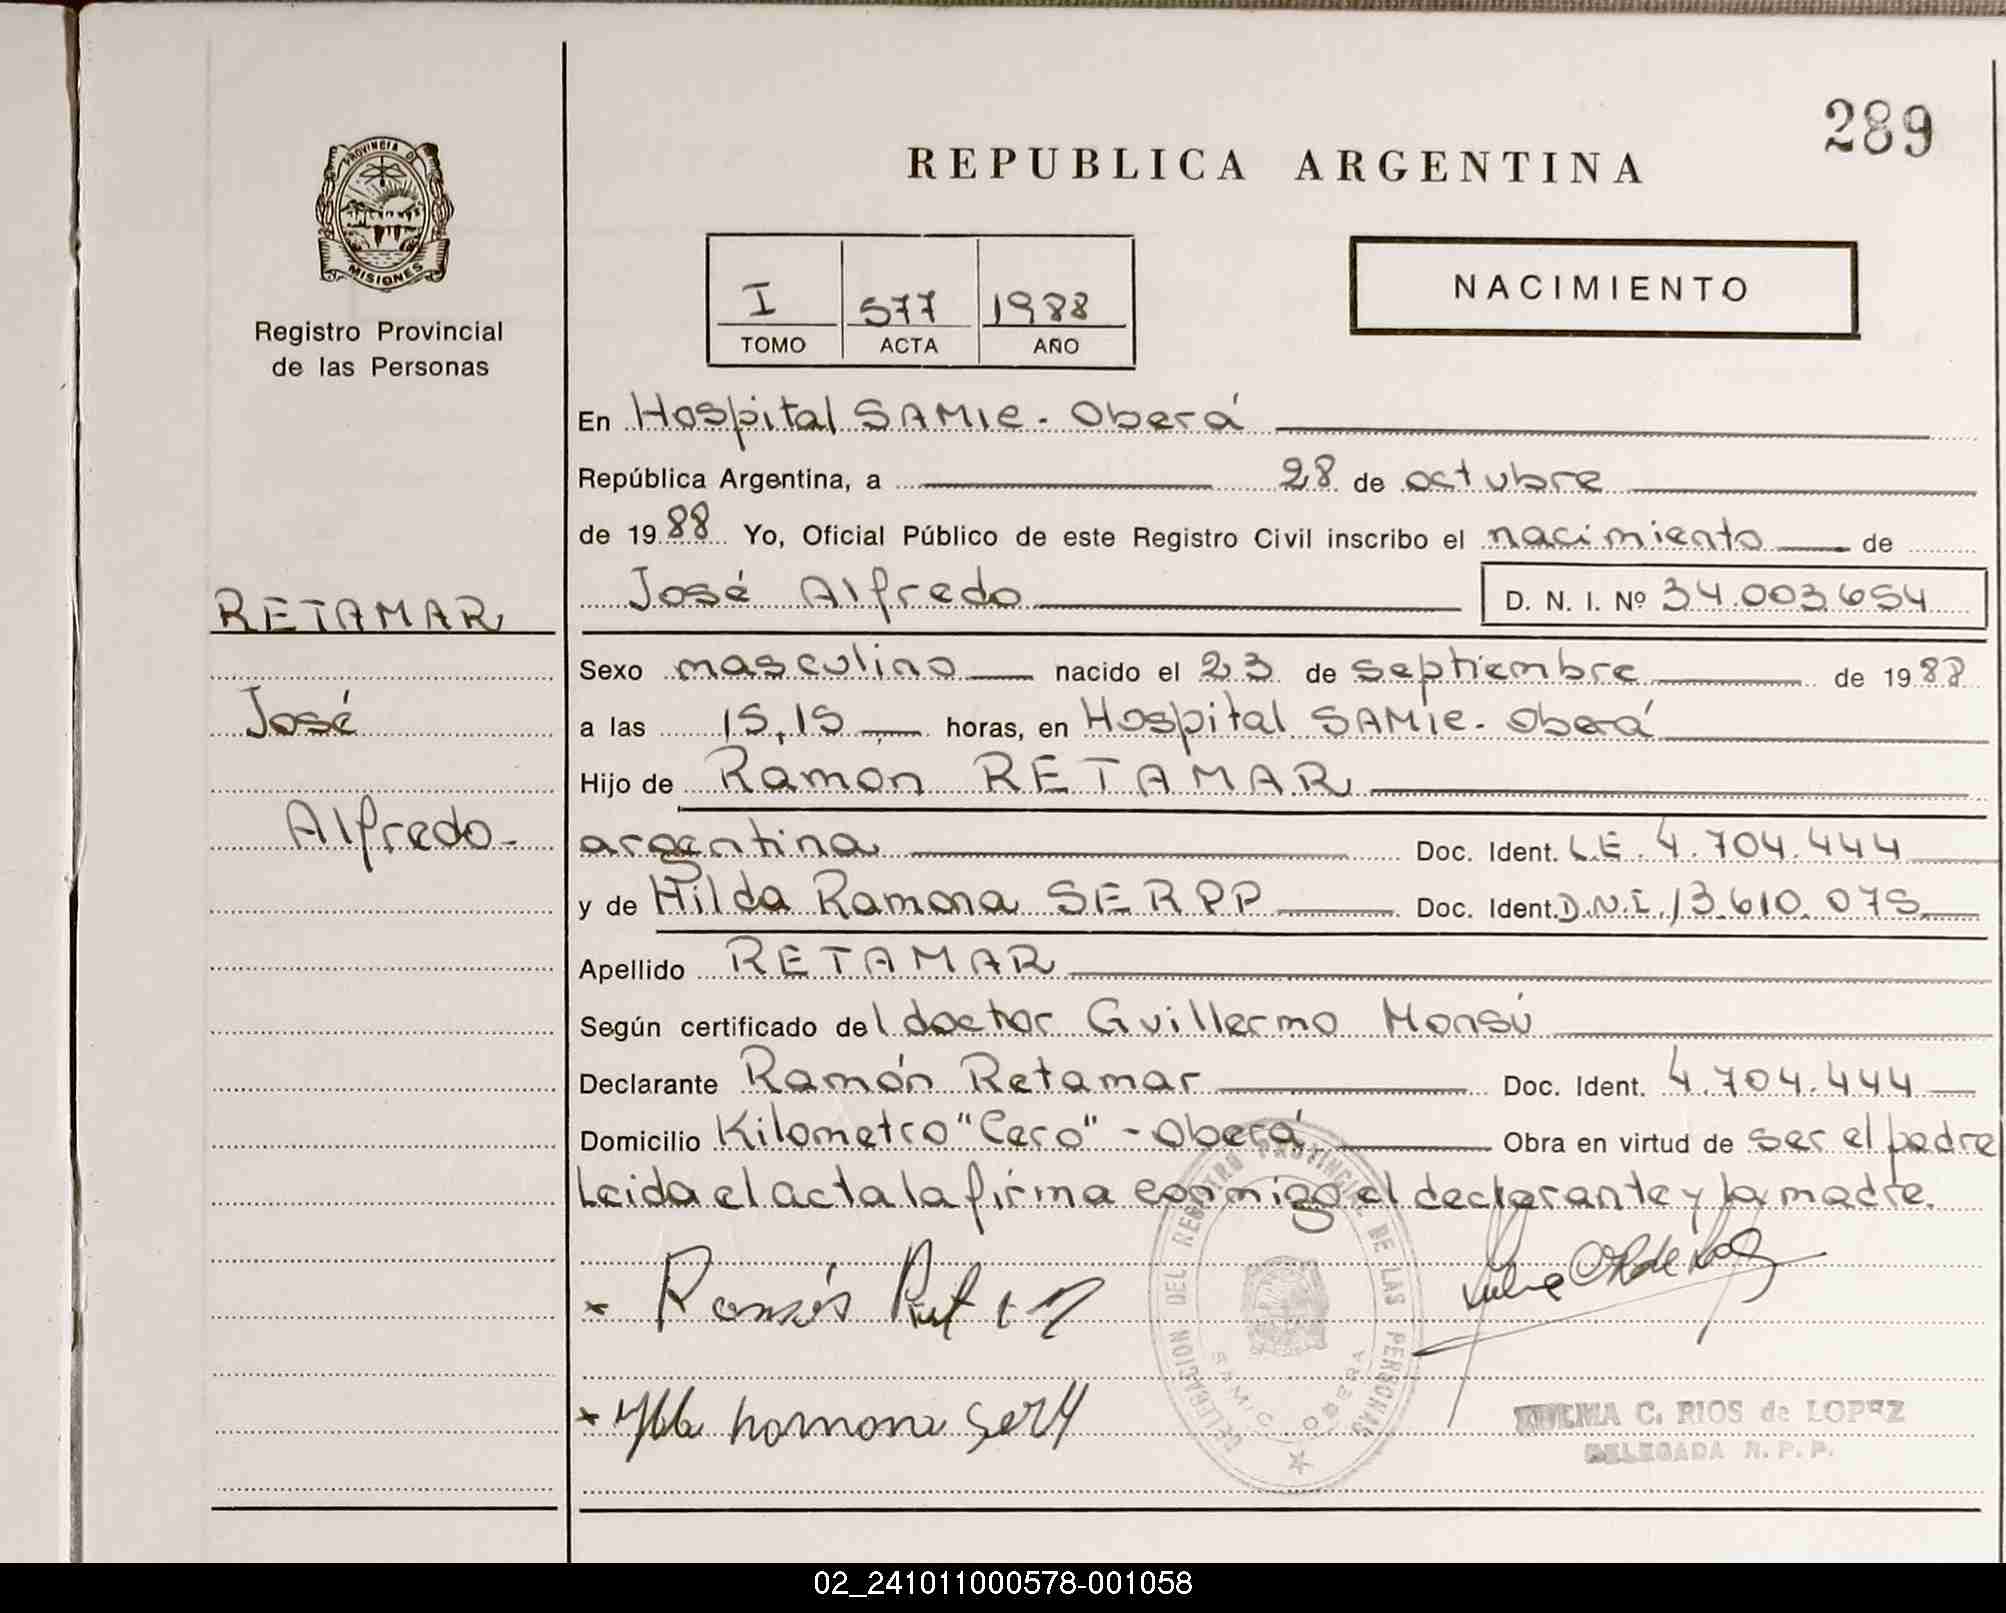 289
REPUBLICA ARGENTINA
PROVINCIA DE
MISIONES
Registro Provincial
de las Personas
NACIMIENTO
I 577 1988
TOMO ACTA AÑO
En Hospital SAMIC - Oberá
República Argentina, a 28 de octubre
de 1988 Yo, Oficial Público de este Registro Civil inscribo el nacimiento de
José Alfredo D. N. I. Nº 34.003.654
RETAMAR
José
Alfredo-
Sexo masculino nacido el 23 de septiembre de 1988
a las 15,15 horas, en Hospital SAMIC - Oberá
Hijo de Ramon RETAMAR
argentina Doc. Ident. L.E. 4.704.444
y de Hilda Ramona SERPP Doc. Ident. D.N.I. 13.610.075
Apellido RETAMAR
Según certificado del doctor Guillermo Monsú
Declarante Ramón Retamar Doc. Ident. 4.704.444
Domicilio Kilometro "Cero" - Oberá Obra en virtud de ser el padre
Leida el acta la firma conmigo el declarante y la madre.
DELEGACION DEL REGISTRO PROVINCIAL DE LAS PERSONAS
SAMIC OBERA
C. RIOS de LOPEZ
DELEGADA R. P. P.
02_241011000578-001058